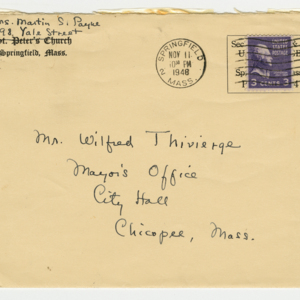 Mrs. Martin S. Payne
98 Yale Street
St. Peter's Church
Springfield, Mass.
SPRINGFIELD
NOV 11
10 PM
1948
MASS.
3 CENTS 3
Mr. Wilfred Thivierge
Mayor's Office
City Hall
Chicopee, Mass.